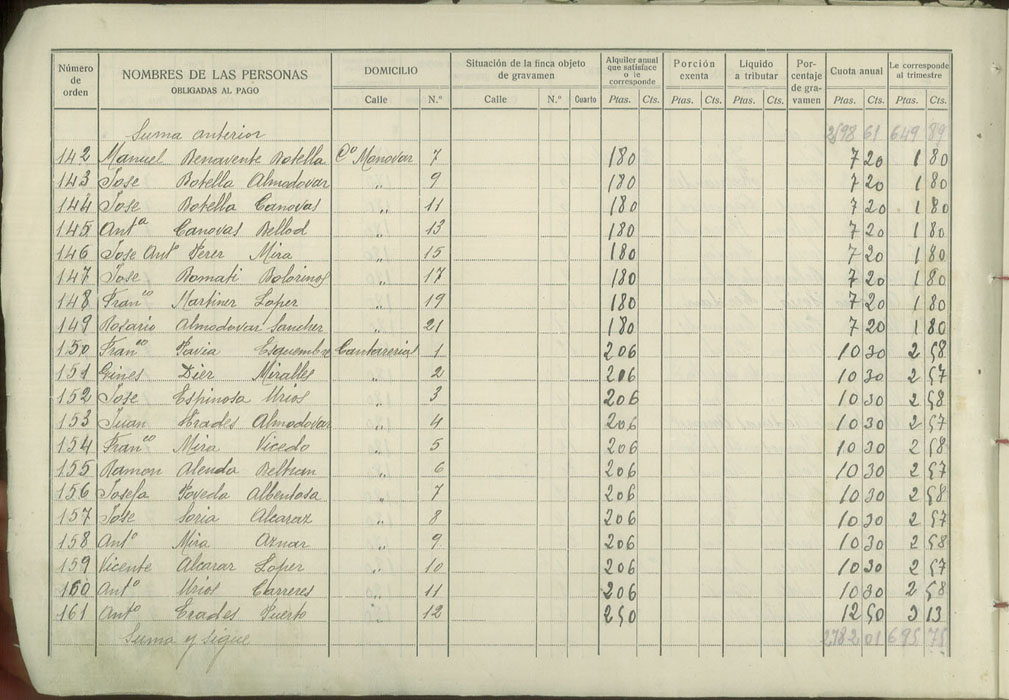 Número de orden | NOMBRES DE LAS PERSONAS OBLIGADAS AL PAGO | DOMICILIO Calle N.º | Situación de la finca objeto de gravamen Calle N.º Cuarto | Alquiler anual que satisface o le corresponde Ptas. Cts. | Porción exenta Ptas. Cts. | Líquido a tributar Ptas. Cts. | Porcentaje de gravamen | Cuota anual Ptas. Cts. | Le corresponde al trimestre Ptas. Cts.
Suma anterior 2598 61 649 89
142 Manuel Benavente Botella Cº Monovar 7 180 7 20 1 80
143 Jose Botella Almodovar " 9 180 7 20 1 80
144 Jose Botella Canovas " 11 180 7 20 1 80
145 Antª Canovas Bellod " 13 180 7 20 1 80
146 Jose Antº Perez Mira " 15 180 7 20 1 80
147 Jose Bolorinos " 17 180 7 20 1 80
148 Franco Martinez Lopez " 19 180 7 20 1 80
149 Rosario Almodovar Sanchez " 21 180 7 20 1 80
150 Franco Pavia Esquembre Cantarerias 1 206 10 30 2 58
151 Gines Diez Miralles " 2 206 10 30 2 57
152 Jose Espinosa Urios " 3 206 10 30 2 58
153 Juan Erades Almodovar " 4 206 10 30 2 57
154 Franco Mira Vicedo " 5 206 10 30 2 58
155 Ramon Alenda Beltran " 6 206 10 30 2 57
156 Josefa Poveda Albentosa " 7 206 10 30 2 58
157 Jose Soria Alcaraz " 8 206 10 30 2 57
158 Antº Mira Aznar " 9 206 10 30 2 58
159 Vicente Alcaraz Lopez " 10 206 10 30 2 57
160 Antº Urios Carreres " 11 206 10 30 2 58
161 Antº Erades Puerto " 12 250 12 50 3 13
Suma y sigue 2782 01 695 75